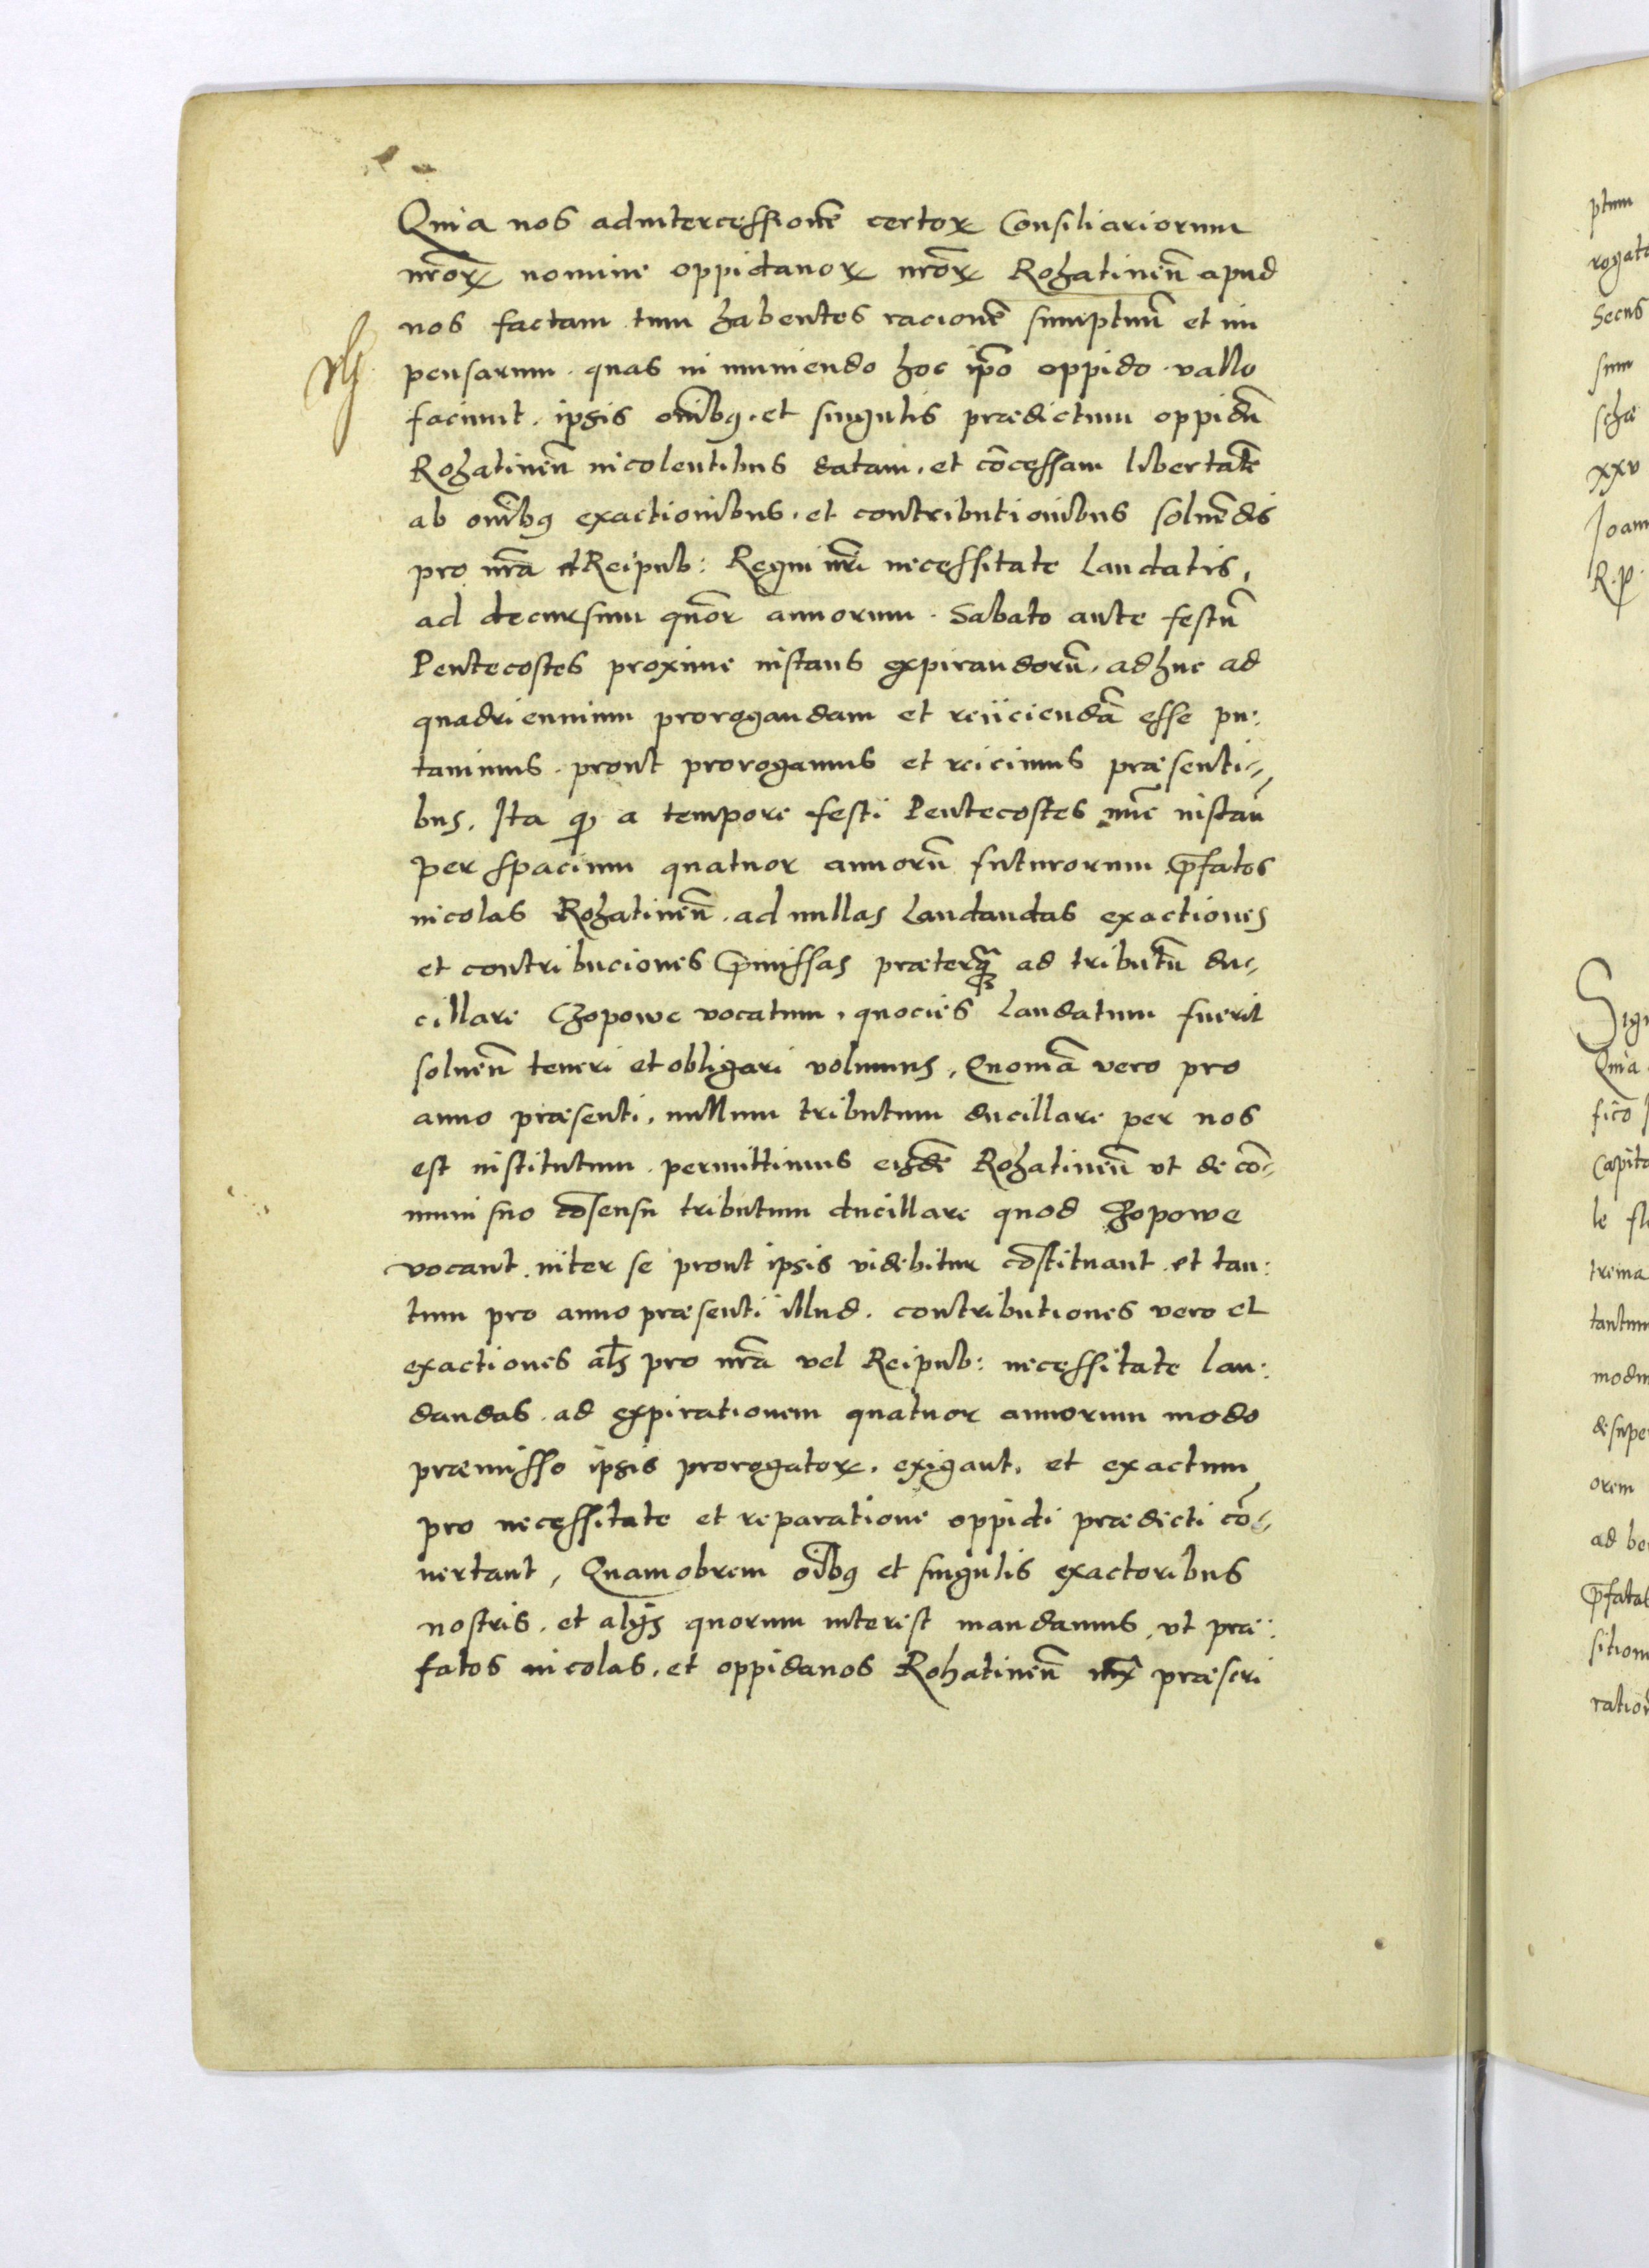 Quia nos ad intercessionẽ certoꝝ Consiliariorum
nr̃oꝝ nomine oppidanoꝝ nr̃oꝝ Rohatineñ apud
nos factam tum habentes racionẽ sumptuũ et im
pensarum . quas in muniendo hoc ip̃o oppido . vallo
faciunt . ipsis om̃ibꝯ . et singulis prædictum oppidũ
Rohatineñ incolentibus datam . et cõcessam libertatẽ
ab om̃ibꝯ exactionibus . et contributionibus soluẽdis
pro nr̃a et Reipub: Regni nr̃i necessitate laudatis ,
ad decursum quõr annorum . Sabato ante festũ
Pentecostes proxime instans expirandorũ . adhuc ad
quadriennium prorogandam et reiiciendã esse pu:
tauimus . prout prorogamus et reicimus præsenti=
bus . Ita ꝙ a tempore festi Pentecostes nũc instañ
per spacium quatuor annorũ futurorum p̃fatos
incolas Rohatineñ . ad nullas laudandas exactiones
et contribuciones p̃missas præterꝙ̃ ad tributũ du=
cillare Czopowe vocatum , quociẽs laudatum fuerit
solueñ teneri et obligari volumus , Quoniã vero pro
anno præsenti . nullum tributum ducillare per nos
est institutum . permittimus eisdẽ Rohatineñ vt de cõ=
muni suo cõsensu tributum ducillare quod Czopowe
vocant . inter se prout ipsis videbitur cõstituant . et tan:
tum pro anno præsenti illud . contributiones vero et
exactiones al̃s pro nr̃a vel Reipub: necessitate lau:
dandas . ad expirationem quatuor annorum modo
præmisso ipsis prorogatoꝝ . exigant . et exactum
pro necessitate et reparatione oppidi prædicti cõ=
uertant , Quamobrem oĩbꝯ et singulis exactoribus
nostris . et alijs quorum interest mandamus . vt præ:
fatos incolas . et oppidanos Rohatineñ præscri
ptum
rogat
Secus
sum
schæ
xxv
Joan
R. P.
Sig
Quia
fico
Capita
le
trema
tantum
modu
desuper
orem
ad be
p̃fatas
sition
ration